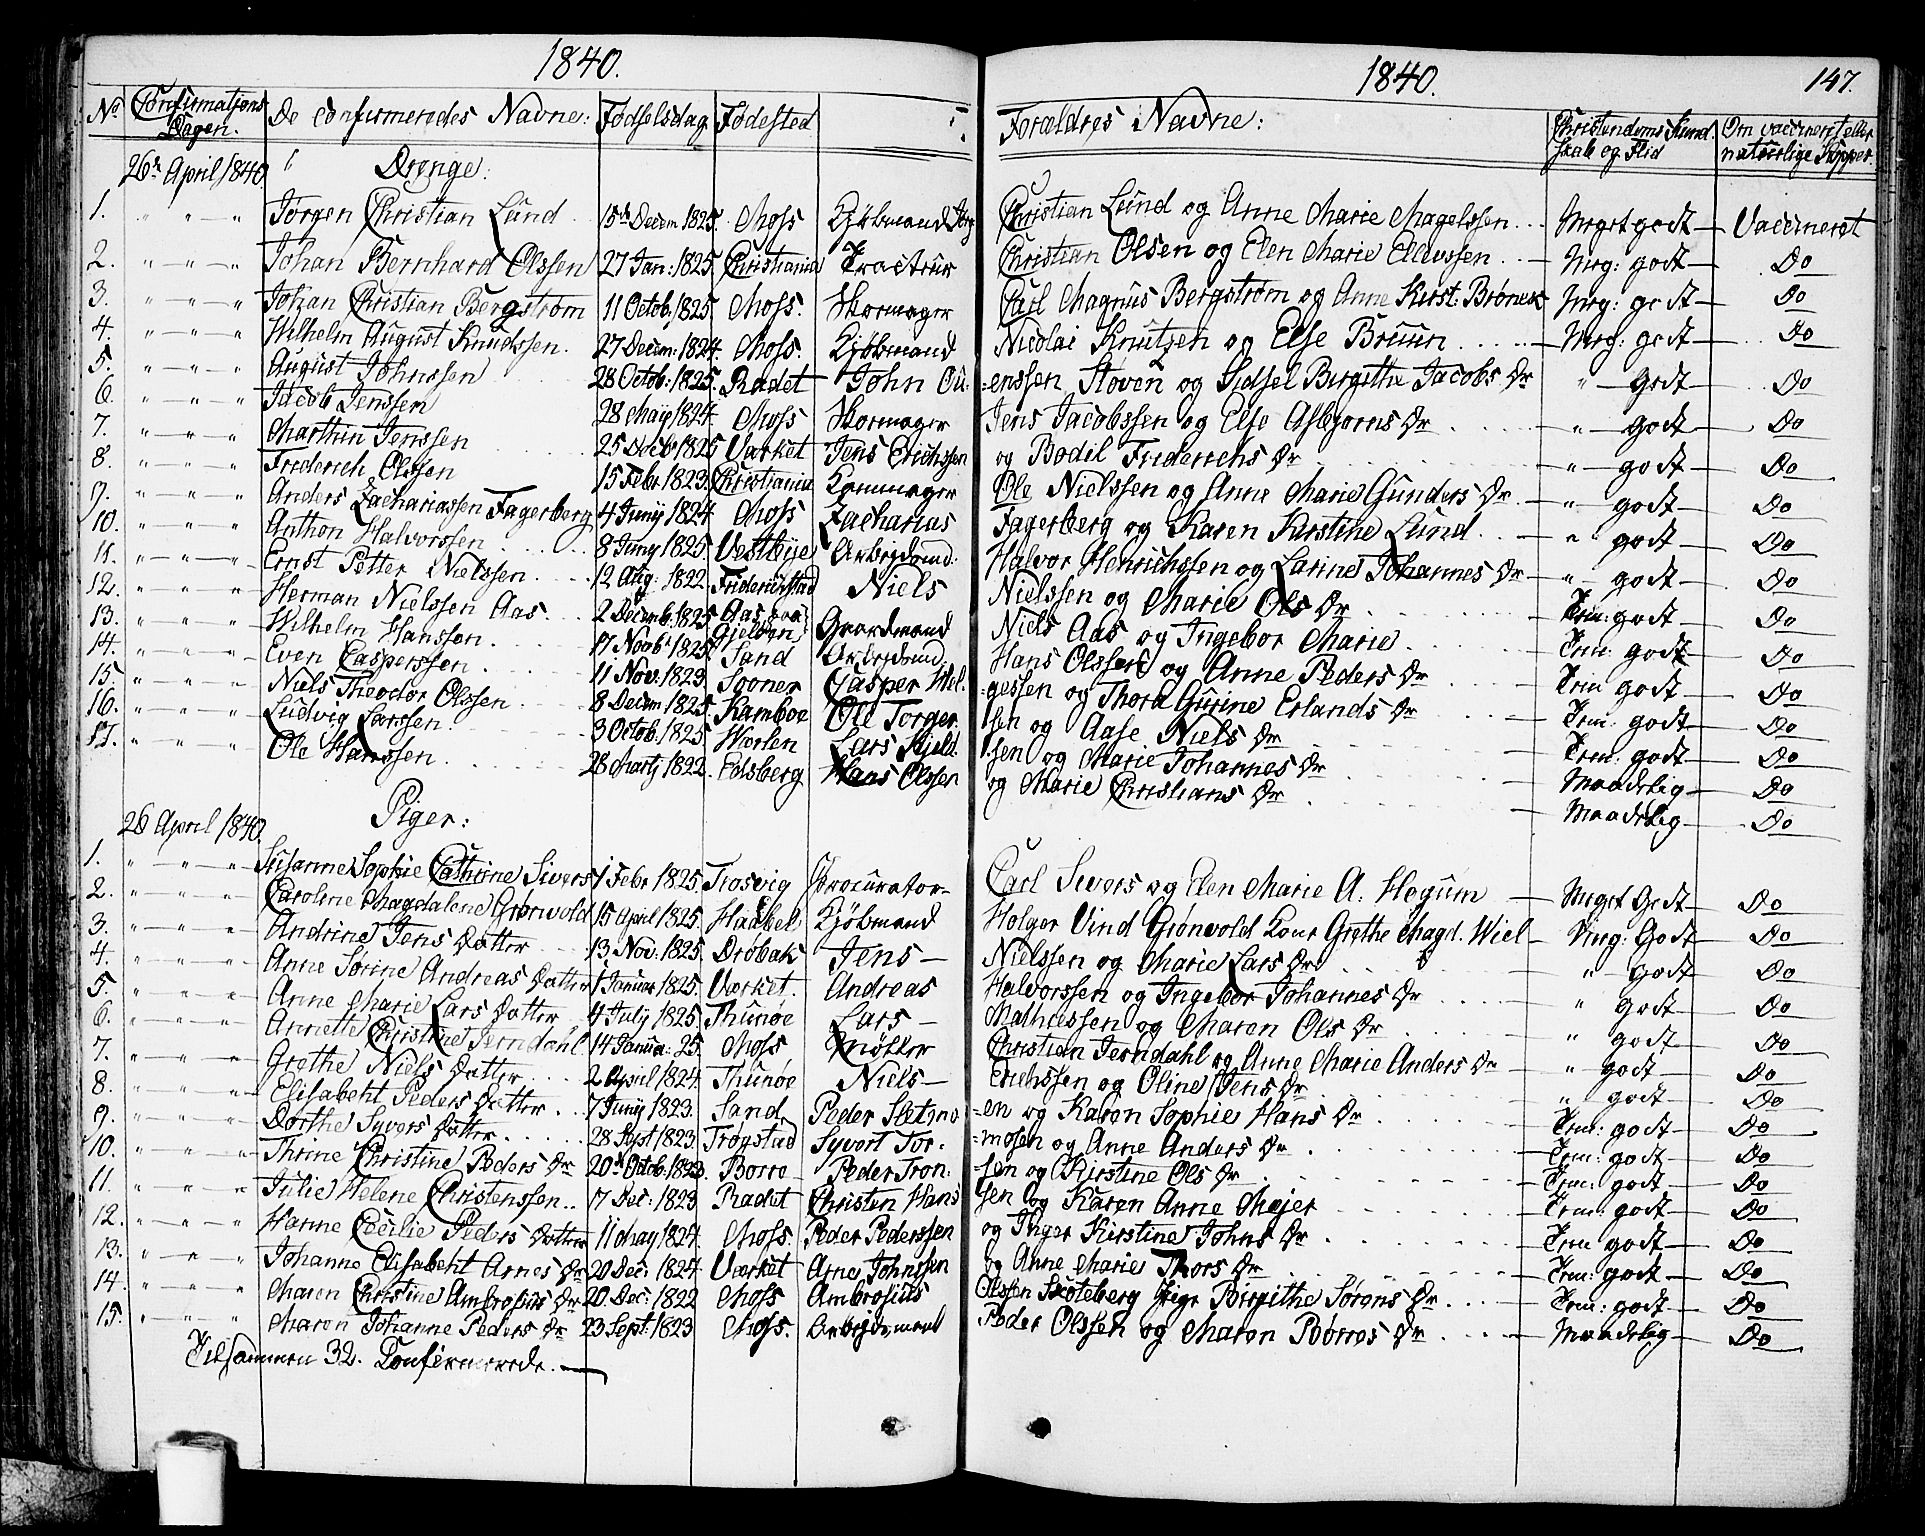 1840.
1840.
147.
No Confirmations Dagen. De confirmeredes Navne: Fødselsdag Fødested Forældres Navne: Christendoms Kundskab og Flid Om vaccineret eller naturlige Kopper
26de April 1840 Drenge:
1. " — " — " Jørgen Christian Lund 15de Decem 1825. Moss Kjøbmand Jørg Christian Lund og Anne Marie Magelssen Meget godt — Vaccineret
2. " — " — " Johan Bernhard Olssen 27 Jan: 1825. Christiania Christian Olsen og Elen Marie Ellevssen Meg: godt — Do
3. " — " — " Johan Christian Bergstrøm 11 Octob. 1825. Moss. Skomager Carl Magnus Bergstrøm og Anne Kirst: Meg: godt — Do
4. " — " — " Wilhelm August Knudssen. 27 Decem: 1824. Moss. Kjøbmand Nicolai Knutzen og Else Bruun Meg: godt — Do
5. " — " — " August Johnssen 28 Octob: 1825. Radet John Ou= =enssen Støven og Sidsel Birgithe Jacobs Dr " — godt — Do
6. " — " — " Jacob Jenssen 28 May 1824. Moss Skomager Jens Jacobssen og Else Asbjørns Dr " — godt — Do
7. " — " — " Marthin Jenssen 25 Decb 1825 Værket Jens Erichssen og Bodil Friderichs Dr " — godt — Do
8. " — " — " Friderich Olssen 15 Febr. 1823. Christiania Ole Nielssen og Anne Marie Gunders Dr " — godt — Do
9. " — " — " Anders Zachariassen Fagerberg 4 Juny 1824 Moss Zacharias Fagerberg og Karen Kirstine Lund " — godt — Do
10. " — " — " Anthon Halvorssen 8 Juny 1825. Vestbye Arbejdsmd. Halvor Henrichssen og Larine Johannes Dr " — godt — Do
11. " — " — " Ernst Petter Nielssen 12 Aug: 1822. Friderichstad Niels Nielssen og Marie Ols Dr Tem: godt — Do
12. " — " — " Herman Nielssen Aas 2 Decemb. 1825. Aas Gaardmand Niels Aas og Ingebor Marie Tem: godt — Do
13. " — " — " Wilhelm Hanssen. 17 Novb 1825. Gjelden Arbejdsmd. Hans Olssen og Anne Peders Dr Tem godt — Do
14. " — " — " Even Casperssen 11 Nov: 1823. Sand Casper Hel= =gessen og Thora Gurine Erlands Dr Tem: godt — Do
15. " — " — " Niels Theodor Olssen 8 Decem 1825. Sooner Ole Torger sen og Aase Niels Dr Tem: godt — Do
16. " — " — " Ludvig Larssen. 3 Octob. 1825. Kamboe Lars Kjeld sen og Marie Johannes Dr Maadelig — Do
17. " " " Ole Hanssen. 28 Marts 1822. Edsberg Hans Olssen og Marie Christians Dr Maadelig — Do
26 April 1840. Piger:
1. " — " — " Susanne Sophie Cathrine Sivers 1 Febr 1825. Trosvig Procurator Carl Sivers og Elen Marie A. Høgum Meget Godt — Do
2. " — " — " Caroline Magdalene Grønvold 15 April 1825. Haabel Kjøbmand Holger Vind Grønvold Kone Grethe Magd. Wiel Meg: Godt — Do
3. " — " — " Andrine Jens Datter 13 Nov: 1825. Drøbak Jens — Nielssen og Marie Lars Dr " — godt Do
4. " — " — " Anne Sørine Andreas Datter 1 Januar 1825. Værket. Andreas Halvorssen og Ingebor Johannes Dr " godt — Do
5. " " " Anne Marie Lars Datter 4 July 1825. Thunøe Lars — Mathiessen og Maren Ols Dr " godt — Do
6. " " " Annette Christine Jerndahl 14 Janua: 25. Moss Christian Jerndahl og Anne Marie Anders Dr " godt — Do
7. " — " — " Grethe Niels Datter 2 April 1824. Thunøe Niels — Erichssen og Oline Jens Dr " godt — Do
8. " — " — " Elisabeht Peders Datter 7 Juny 1823. Sand Peder =en og Karen Sophie Hans Dr Tem: godt — Do
9. " — " — " Dorthe Syvers Datter 28 Sept 1823. Trøgstad Syvert Tor= =mosen og Anne Anders Dr Tem: godt — Do
10. " — " — " Thrine Christine Peders Dr 20 Octob. 1823. Borre Peder Tron= =sen og Kirstine Ols Dr Tem: godt — Do
11. " " " Julie Helene Christenssen 17 Dec: 1823 Radet Christen Hans sen og Karen Anne Mejer Tem: godt — Do
12. " — " — " Hanne Cecilie Peders Datter 11 May 1824. Moss. Peder Pederssen og Inger Kirstine Johns Dr Tem godt — Do
13. " — " — " Johanne Elisabeht Arnes Dr 20 Dec: 1824 Værket Arne Johnssen og Anne Marie Thors Dr Tem: godt — Do
14. " " " Maren Christine Ambrosius Dr 20 Dec: 1822 Moss Ambrosius Olssen Skoteberg Birgithe Sørens Dr Tem: godt — Do
15. " " " Maren Johanne Peders Dr 23 Sept: 1823 Moss. Arbejdsmand Peder Olssen og Maren Børres Dr Maadelig — Do
Tilsammen 32. Confirmerede. —